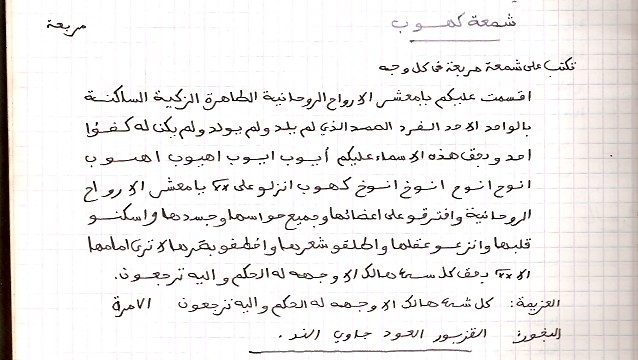 شمعة كهوب
مربعة
تكتب على شمعة مربعة في كل وجه
اقسمت عليكم يا معشر الارواح الروحانية الطاهرة الزكية الساكنة
بالواحد الاحد الفرد الصمد الذي لم يلد ولم يولد ولم يكن له كفؤا
احد وبحق هذه الاسماء عليكم أيوب ايوب اهيوب اهيوب
انوح انوح انوخ انوخ كهوب انزلو على xx يا معشر الارواح
الروحانية وافترقو على اعضائها وجميع حواسها وجسدها واسكنو
قلبها وانزعو عقلها واطلقو شعرها واخطفو بصرها لا ترى امامها
الا xx بحق كل شيء هالك الا وجهه له الحكم واليه ترجعون.
العزيمة: كل شيء هالك الا وجهه له الحكم واليه ترجعون 10 مرة
البخور: القزبور العود جاوي الند.